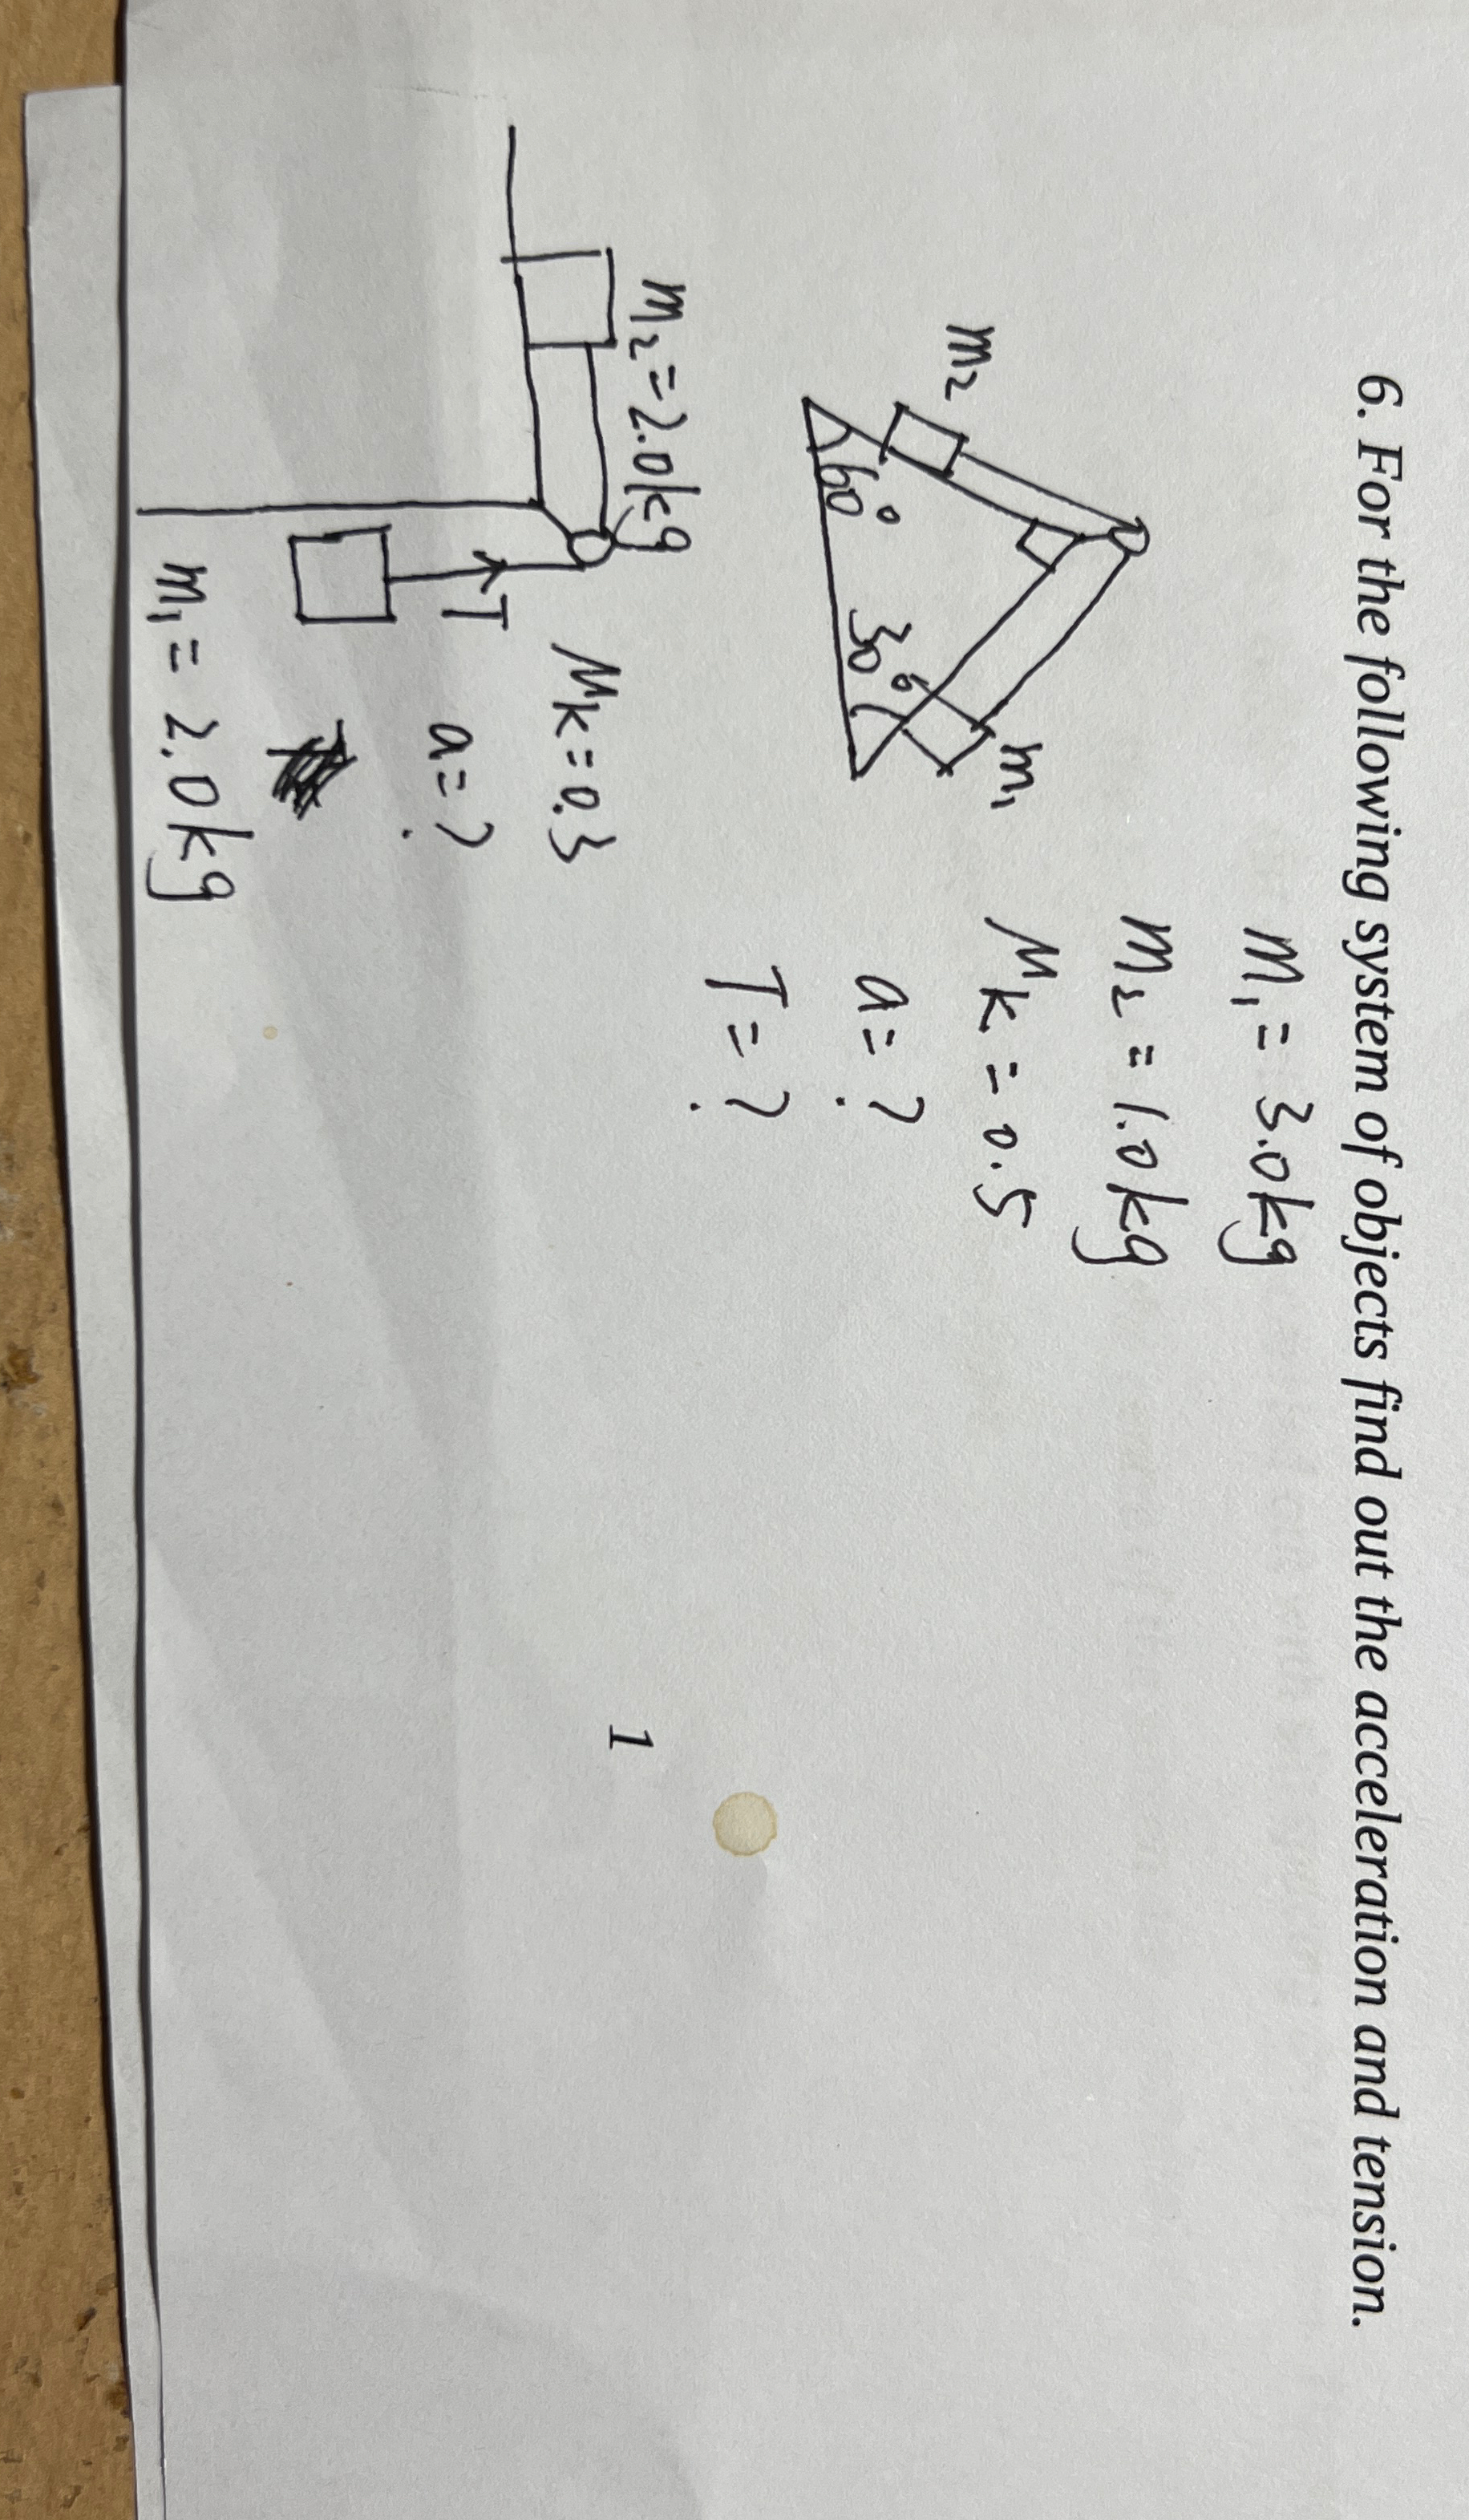 6. For the following system of objects find out the acceleration and tension.
m₁ = 3.0kg
m₂ = 1.0kg
μₖ = 0.5
a = ?
T = ?
m₂
m₁
60°
30°
m₂ = 2.0kg
μₖ = 0.3
T
a = ?
m₁ = 2.0kg
1